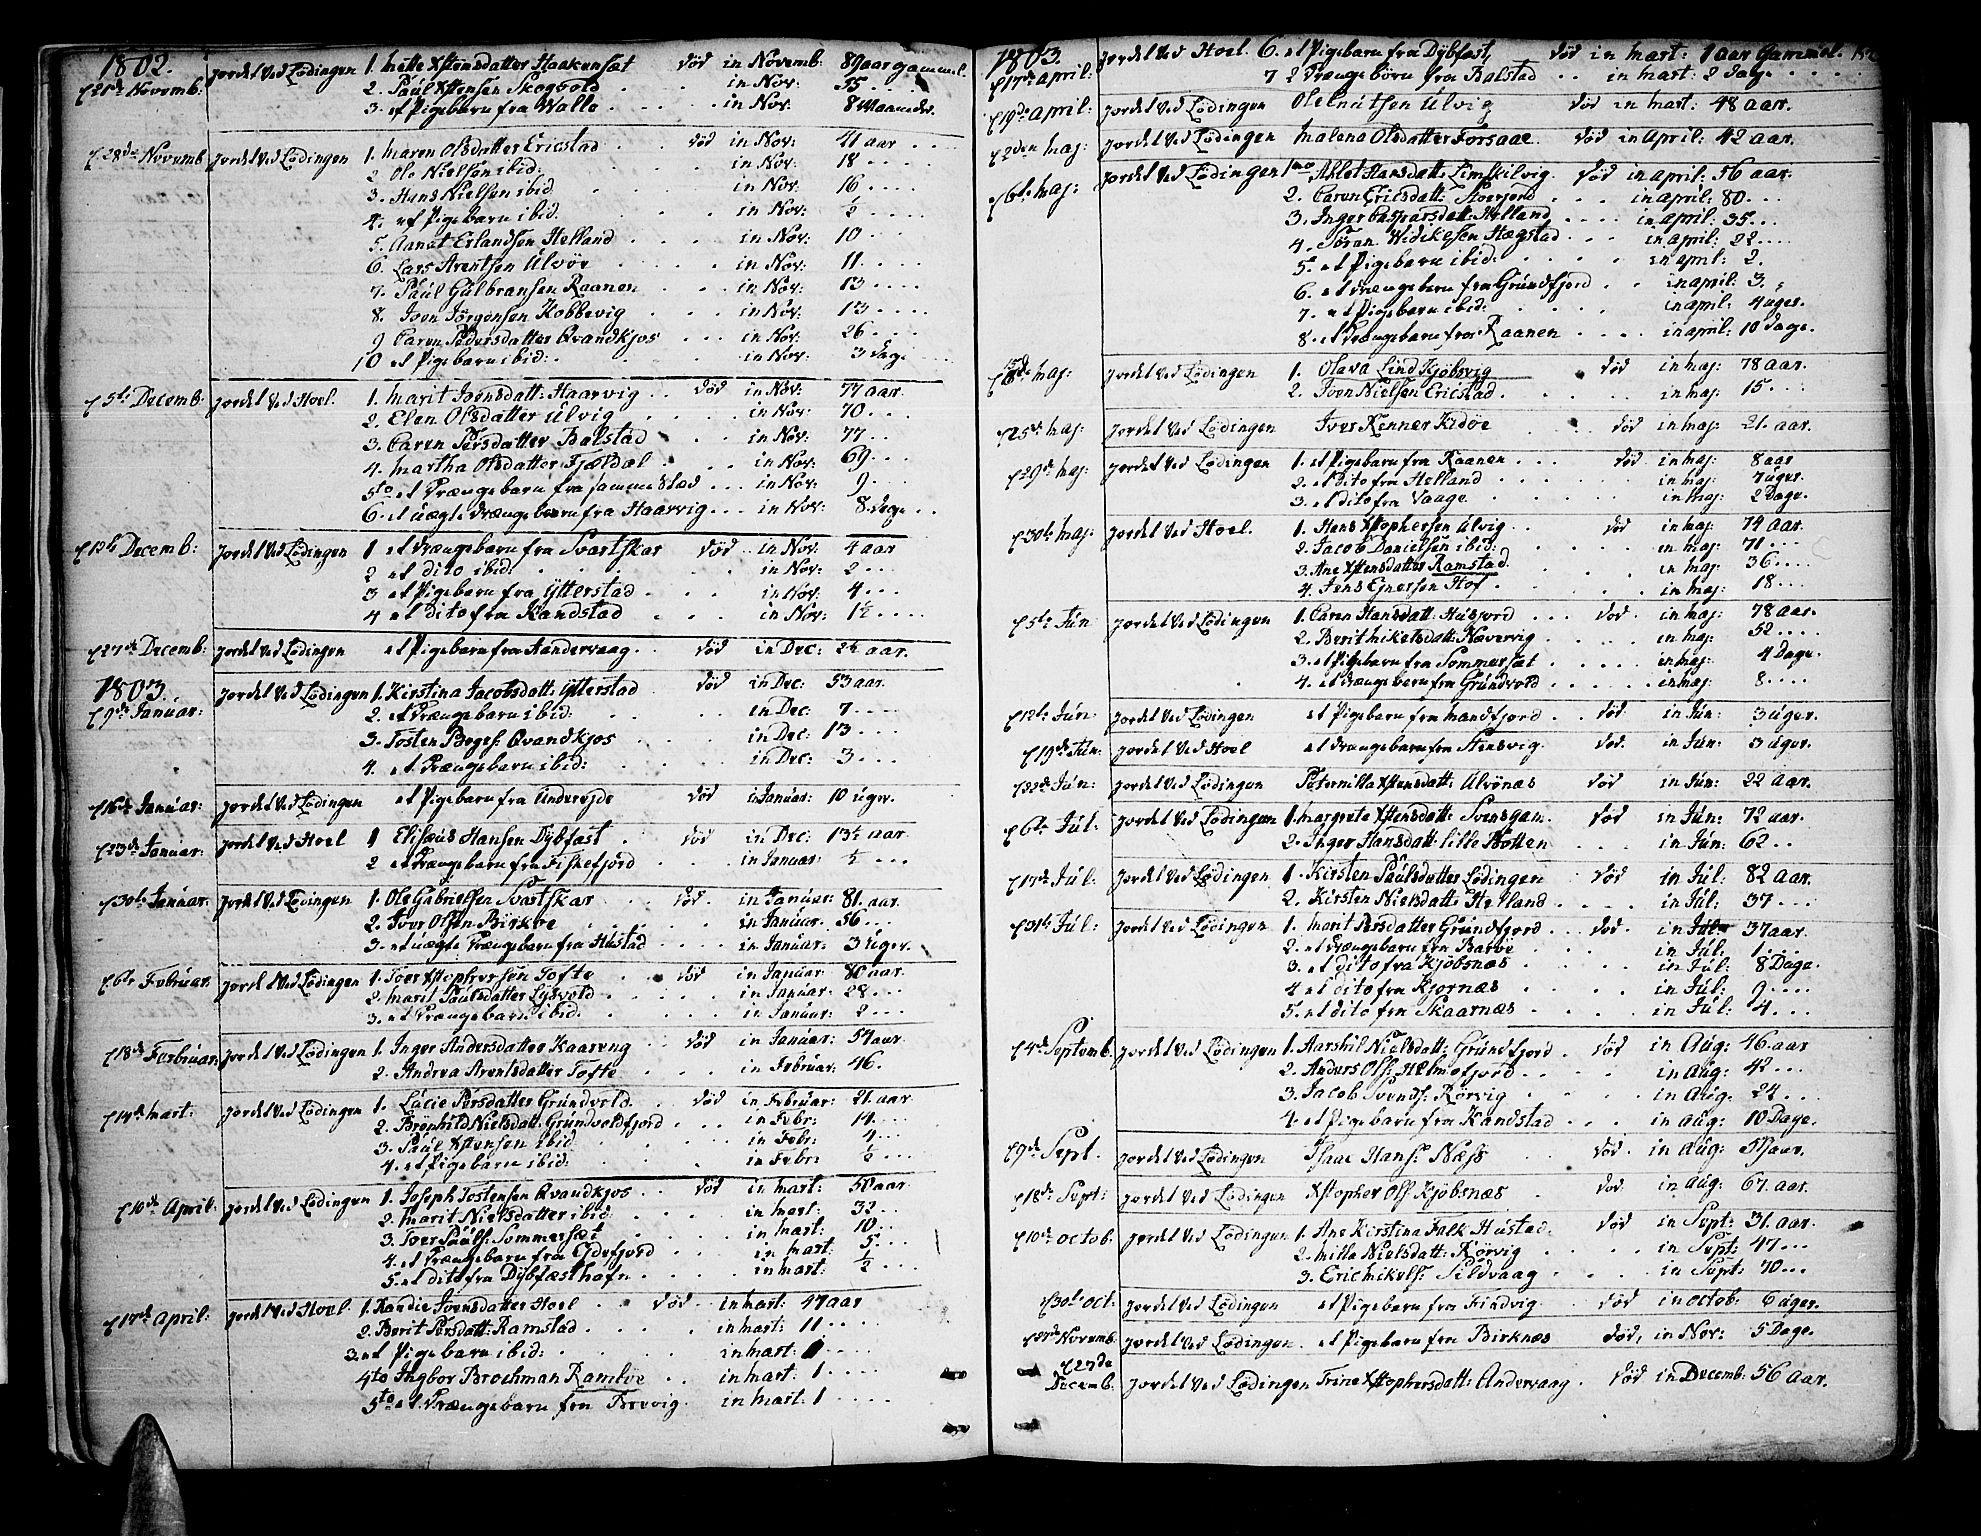 1802.
21de Novemb: jordet ved Lödingen 1. Mette Xstensdatter Haakenset död in Novemb: 89 aar gammel.
2. Paúl Xstensen Skogvold . . . . in Nov: 55 . . . .
3. et Pigebarn fra Walle . . . . in Nov: 8 Maaneder.
28de Novemb jordet ved Lödingen 1. Maren Olsdatter Ericstad . . död in Nov: 41 aar . .
2. Ole Nielsen ibid: in Nov: 18 . . . .
3. Hans Nielsen ibid . . . in Nov: 16 . . . .
4. et Pigebarn ibid: . . . in Nov: ½ . . . .
5. Aanet Erlandsen Helland . . . . in Nov: 10 . . .
6. Lars Arentsen Ulvöe . . . . in Nov: 11 . . . .
7. Paúl Gúlbransen Raanen . . . in Nov: 13 . . . .
8. Iven Jörgensen Kobbevig . . . . in Nov: 13 . . . .
9 Caren Pedersdatter Qvandkjos . . . in Nov: 26 . . . .
10 et Pigebarn ibid: . . in Nov: 3 dage
5te Decemb: jordet ved Hoel. 1. Marit Ivensdatt: Haarvig . . död in Nov: 77 aar.
2. Elen Olsdatter Ulvig . . . . in Nov: 70 . . .
3. Caren Persdatter Balstad . . in Nov: 77 . .
4. Martha Olsdatter Fjeldal . . . . in Nov: 69 . . .
5to et Drængebarn fra samme Stæd . . . in Nov: 9 . . .
6. et uægte Drængebarn fra Haarvig . . . in Nov: 8 dage . .
12te Decemb: jordet ved Lödingen 1 et Drængebarn fra Svartskar död . . in Nov: 4 aar
2 et dito ibid: . . . . in Nov: 2 . . .
3 et Pigebarn fra Ytterstad . . . in Nov: 4 . . .
4 et dito fra Kandstad . . . . in Nov: 1½ . . . .
27de Decemb: jordet ved Lödingen et Pigebarn fra Sandervaag . . död in Dec: 2½ aar.
1803.
9de Januar: jordet ved Lödingen 1. Kirstina Jacobsdatt: Ytterstad död in Dec: 53 aar.
2. et Drængebarn ibid: . . . . in Dec: 7 . . . .
3. Tosten Boges: Qvandkjos . . . . in Dec: 13 . . .
4. et Drængebarn ibid: . . . in Dec: 3 . . .
16de Januar: jordet ved Lödingen et Pigebarn fra Andereide död in Januar: 10 uger.
23de Januar: jordet ved Hoel 1 Elisæus Hansen Dybfast . död in Dec: 13½ aar.
2 et Drængebarn fra Fiskefjord . . . in Januar: ½ . . .
30te Januar. jordet ved Lödingen 1. Ole Gabrielsen Svartskar . . död. in Januar: 81. aar.
2. Iver Olsen Birkve . . . . in Januar: 56 . . .
3. et uægte Drængebarn fra Hustad . . . . in Januar: 3 uger.
6te Februar. jordet ved Lödingen 1. Iver Xstophersen Tofte . . död in Januar: 80 aar.
2. Marit Paulsdatter Lysvold . . . . in Januar: 28 . . .
3. et Drængebarn ibid: . . . . in Januar: 2 . . .
18de Februar: jordet ved Lödingen 1. Inger Andersdatter Kaareng . . död in Januar: 54 aar.
2. Andrea Arentsdatter Tofte . . . . in Februar: 46.
14de Mart: jordet ved Lödingen 1. Lucie Persdatter Grundvold . död in Februar: 21 aar
2. Brönhild Nielsdatt: Grundvoldfjord . . . in Febr: 14 . . .
3. Paul Xstensen ibid . . . in Febr: 4 . . .
4. et Pigebarn ibid: . . in Febr: ½ . . .
10de April: jordet ved Lödingen 1. Joseph Tostensen Qvandkjos . . död in Mart: 50 aar
2. Marit Nielsdatter ibid . . . . in Mart: 32 . . .
3. Iver Pauls: Sommerset . . . . in Mart: 10 . . .
4. et Drængebarn fra Eidefjord . . . in Mart: 5 . . .
5. et dito fra Dybfæsthafn . . . . in Mart: ½ . . .
17de April: jordet ved Hoel. 1. Randie Ivensdatter Hoel . . död . . in Mart: 47 aar
2. Berit Persdatt: Ramstad . . . . in Mart: 11 . . . .
3. et Pigebarn ibid: . . . . in Mart: 1 . . . .
4to Ingbor Brochman Ramböe . . in Mart: 1 . . . .
5to et Drængebarn fra Brevig. in Mart: 1 . . . .
1803.
17de April: jordet ved Hoel. 6. et Pigebarn fra Dybfast, död in Mart: 1 aar Gammel.
7 2 Drængebörn fra Balstad . . in Mart: 2 Dage . . . .
19de April: jordet ved Lödingen Ole Knutsen Ulvig död in Mart: 48 aar.
2den Maj: jordet ved Lödingen Malena Olsdatter Forsaae. död in April: 42 aar.
6te Maj: jordet ved Lödingen 1mo Ahlet Hansdatt: Limskilvig. död in april: 56 aar.
2. Caren Ericsdatt: Storjord . . . in april: 80 . . .
3. Inger Caspersdatt: Helland . . . . in april: 35 . . .
4. Sören Widiksen Hægstad . . . in april: 22 . . . .
5. et Pigebarn ibid: . . . . in april: 2.
6. et Drængebarn fra Grundfjord . . in april: 3.
7. et Pigebarn ibid: . . . . in april: 4 uger.
8. et Drængebarn fra Raanen . . . . in april: 10 dage.
15de Maj: jordet ved Lödingen 1. Olava Lind Kjöbsvig död in maj: 78 aar.
2. Iven Nielsen Ericstad . . . . in maj: 15 . . .
25de Maj: jordet ved Lödingen Iver Kenner Kidöe . . död in maj: 21. aar.
29de Maj: jordet ved Lödingen 1. et Pigebarn fra Raanen . . . död in maj: 8 aar
2. et dito fra Helland . . . . in maj: 7 uger.
3. et dito fra Vaage . . . . in maj: 2 Dage.
30te Maj: jordet ved Hoel. 1. Hans Xstophersen Ulvig . . död in maj: 74 aar.
2. Jacob Danielsen ibid: . . . . in maj: 71 . . .
3. Ane Xstensdatter Ramstad. . . . in maj: 36 . . . .
4. Jens Ejnersen Hof . . . . in maj: 18 . . . .
5te Jún jordet ved Lödingen 1. Caren Hansdatt: Husjord . . . död in maj: 78 aar.
2. Berit Mikelsdatt: Kavervig . . . . in maj: 52 . . . .
3. et Pigebarn fra Sommerset . . . . in maj: 4 Dage.
4. et Drængebarn fra Grundvold . . . . in maj: 8 . . . .
12te Jún: jordet ved Lödingen et Pigebarn fra Mandfjord . . död. in Jún: 3 uger.
19de Jún: jordet ved Hoel et Drængebarn fra Stensvig. död. in Jún: 3 uger.
22de Jún: jordet ved Lödingen Peternilla Xstensdatt: Ulvönæs död in Jún: 22 aar.
6te Júl: jordet ved Lödingen 1. Margrete Xstensdatt: Svensgam. död in Jún: 72 aar.
2. Inger Hansdatt: lille Hötten . . . in Jún: 62 . .
17de Júl: jordet ved Lödingen 1. Kirsten Paulsdatter Lödingen . död in Júl: 82 aar.
2. Kirsten Nielsdatt: Helland . . . . in Júl: 37 . . .
31te Júl: jordet ved Lödingen 1. Marit Persdatter Grundfjord . . död. in Júl 37 aar.
2. et Drængebarn fra Baröe . . in Júl: 1 . . . .
3. et dito fra Kjöbsnæs . . . . in Júl: 8 Dage.
4 et dito fra Kjornæs . . . . in Júl: 9 . . . .
5. et dito fra Skaarnæs . . . . in Júl: 4 . . . .
4de Septemb. jordet ved Lödingen 1. Aarshil Nielsdatt: Grundfjord. död in Aug: 46. aar
2. Anders Ols: Helmofjord . . . . in Aug: 42 . . .
3. Jacob Svends: Rörvig . . . . in Aug: 24 . . .
4. et Pigebarn fra Kandstad . . . in Aug: 10 Dage.
9de Sept. jordet ved Lödingen Isaac Hans: Næss död. in Aug: aar.
18de Sept: jordet ved Lödingen Xstopher Ols: Kjöbsnæs död in Aug: 67. aar.
10de octob. jordet ved Lödingen 1. Ane Kirstina Falk Hustad. död in Sept: 31. aar.
2. Mille Nielsdatt: Rörvig . . . . in Sept: 47 . . .
3. Eric Mikels: Sildvaag . . . . in Sept: 70 . . .
30te oct: jordet ved Lödingen et Pigebarn fra Findvig. död in octob. 6 uger.
Novemb: jordet ved Lödingen et Pigebarn fra Birknæs död, in Nov: 5 Dage.
27de
Decemb. jordet ved Lödingen Trine Xstophersdatt: Andervaag . död in Decemb: 56 aar.